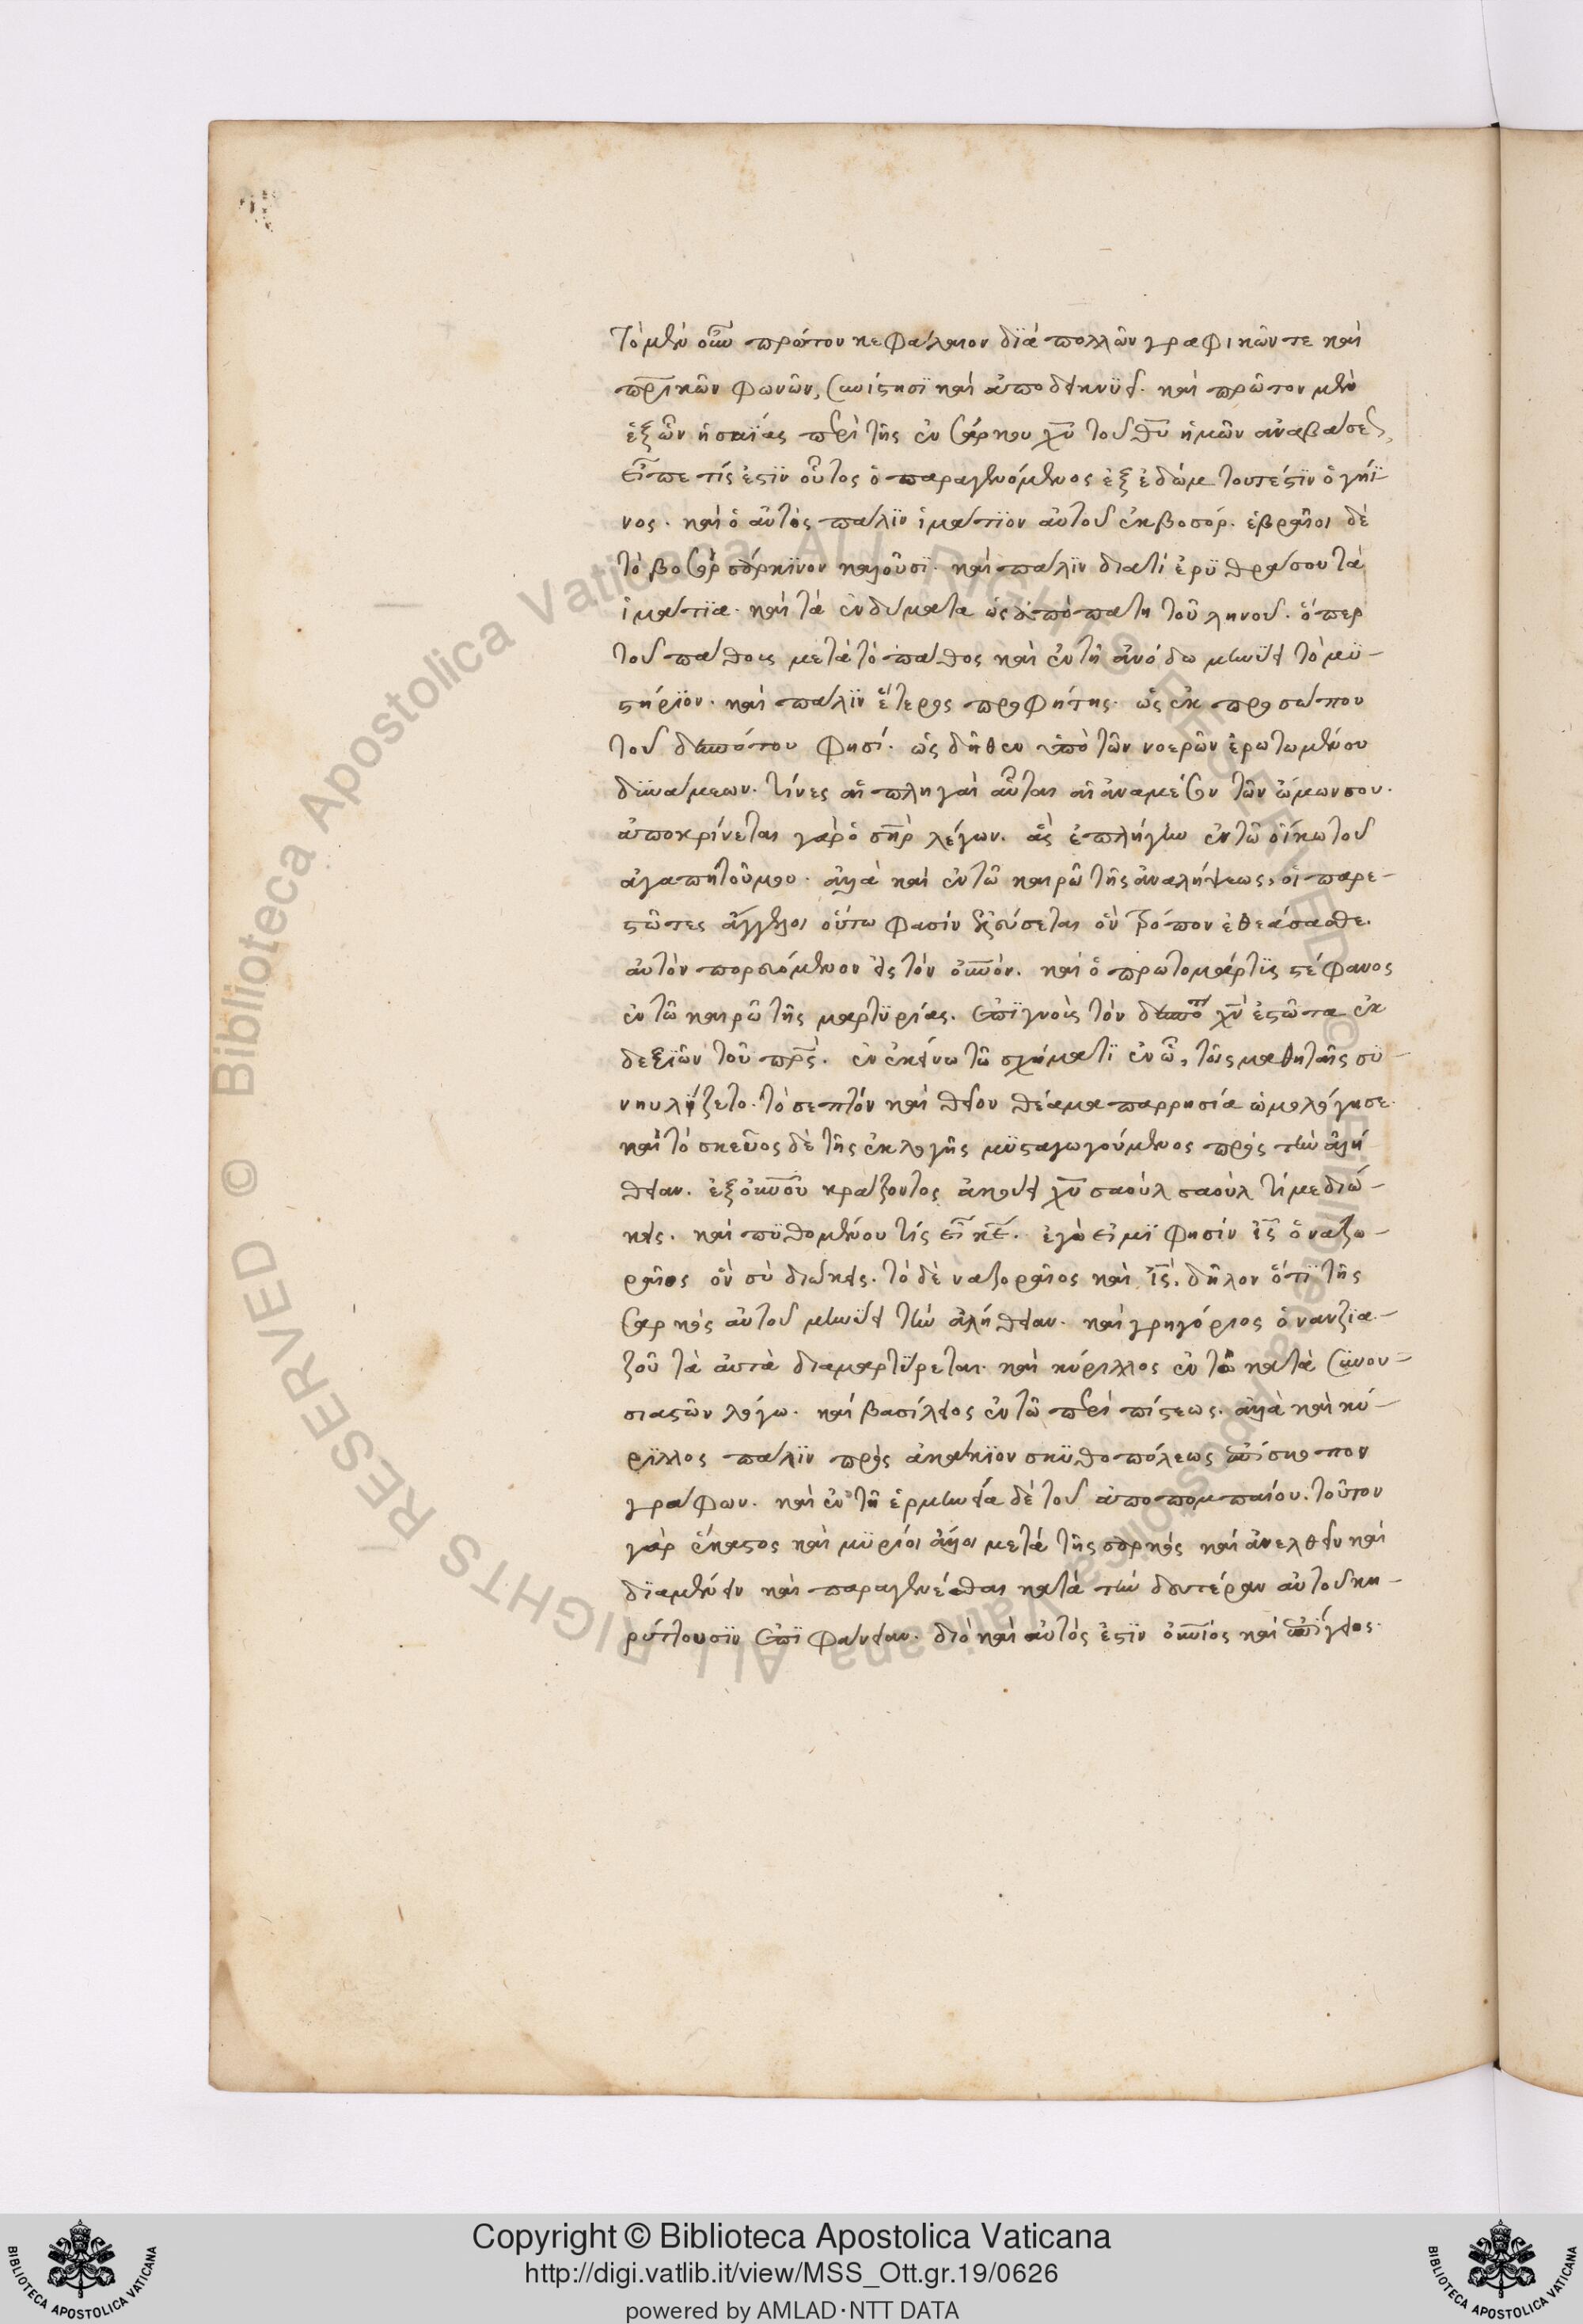 τὸ μὲν οὖν πρῶτον κεφάλαιον διὰ πολλῶν γραφικῶν τε καὶ
πρικῶν φωνῶν, συνίστησϊ καὶ ἀποδεικνύει. καὶ πρῶτον μὲν
ἐξ ὧν ἡσαΐας περὶ τῆς ἐν σάρκου χυ τοῦ θυ ἡμῶν ἀναβάσεως,
εἶπε τίς ἐστϊν οὗτος ὁ παραγενόμενος ἐξ ἐδώμ τουτέστϊν ὁ γήϊ-
νος. καὶ ὁ αὐτὸς πάλϊν ἱμάτϊον αὐτοῦ ἐκ βοσόρ. ἑβραῖοι δὲ
τὸ βοσὸρ σάρκϊνον καλοῦσϊ. καὶ πάλϊν διατί ἐρϋθρά σου τὰ
ἱμάτϊα. καὶ τὰ ἐνδύματα ὡς ἀπὸ πατη τοῦ ληνοῦ. ὅπερ
τοῦ πάθους μετὰ τὸ πάθος καὶ ἐν τῆ ἀνόδω μηνύει τὸ μϋ-
στήρϊον. καὶ πάλϊν ἕτερος προφήτης. ὡς ἐκ προσώπου
τοῦ δεσπότου φησί. ὡς δῆθεν ὑπὸ τῶν νοερῶν ἐρωτωμένου
δϋνάμεων. τίνες αἱ πληγαὶ αὗται αἱ ἀναμέσον τῶν ὤμων σου.
ἀποκρίνεται γὰρ ὁ σηρ λέγων. ἃς ἐπλήγην ἐν τῶ οἴκω τοῦ
ἀγαπητοῦ μου. ἀλλὰ καὶ ἐν τῶ καιρῶ τῆς ἀναλήψεως, οἱ παρε-
στῶτες ἄγγελοι οὕτω φασίν ἐλεύσεται ὃν τρόπον ἐθεάσασθε.
αὐτὸν πορευόμενον εἰς τὸν οὐνόν. καὶ ὁ πρωτομάρτϋς στέφανος
ἐν τῶ καιρῶ τῆς μαρτϋρίας. ἐπϊγνοὺς τὸν δεσπό χν ἑστῶτα ἐκ
δεξϊῶν τοῦ πρς. ἐν ἐκείνω τῶ σχήματϊ ἐν ὧ, τοῖς μαθηταῖς σϋ-
νηυλίζετο. τὸ σεπτόν καὶ θεῖον θέαμα παρρησία ὡμολόγησε.
καὶ τὸ σκεῦος δὲ τῆς ἐκλογῆς μϋσταγωγούμενος πρὸς τὴν ἀλή
θειαν. ἐξ οὐνοῦ κράζοντος ἀκούει χυ σαούλ σαούλ τί με διώ-
κεις. καὶ πϋθομένου τίς εἶ κε. ἐγώ εἰμϊ φησίν ις ὁ ναζω-
ραῖος ὃν σὺ διώκεις. τὸ δὲ ναζοραῖος καὶ ις. δῆλον ὅτϊ τῆς
σαρκὸς αὐτοῦ μηνύει τὴν ἀλήθειαν. καὶ γρηγόριος ὁ νανζϊα-
ζοῦ τὰ αὐτὰ διαμαρτϋρεται. καὶ κύριλλος ἐν τῶ κατὰ σϋνου-
σιαστῶν λόγω. καὶ βασίλειος ἐν τῶ περὶ πίστεως. ἀλλὰ καὶ κύ-
ρϊλλος πάλϊν πρὸς ἀκάκϊον σκϋθοπόλεως ἐπίσκοπον
γράφων. καὶ ἐν τῆ ἑρμηνεία δὲ τοῦ ἀποπομπαίου. τοῦτον
γὰρ ἕκαστος καὶ μϋρίοι ἄλλοι μετὰ τῆς σαρκὸς καὶ ἀνελθεῖν καὶ
δϊαμένειν καὶ παραγενέσθαι κατὰ τὴν δευτέραν αὐτοῦ κη-
ρύττουσϊν ἐπϊφάνειαν. διὸ καὶ αὐτός ἐστϊν οὐνιός καὶ ἐπίγειος.
Copyright © Biblioteca Apostolica Vaticana
http://digi.vatlib.it/view/MSS_Ott.gr.19/0626
powered by AMLAD·NTT DATA